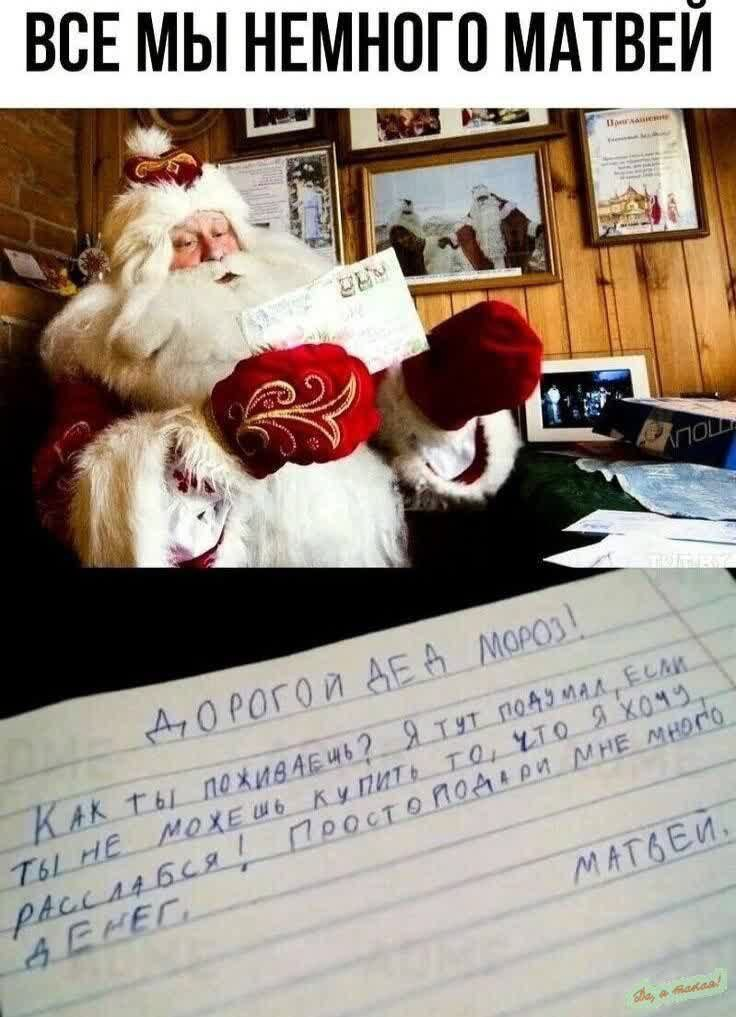 ВСЕ МЫ НЕМНОГО МАТВЕЙ
Приглашение
ДОРОГОЙ ДЕД МОРОЗ!
КАК ТЫ ПОЖИВАЕШЬ? Я ТУТ ПОДУМАЛ, ЕСЛИ
ТЫ НЕ МОЖЕШЬ КУПИТЬ ТО, ЧТО Я ХОЧУ,
РАССЛАБСЯ! ПРОСТО ПОДАРИ МНЕ МНОГО
ДЕНЕГ.
МАТВЕЙ.
Да, я такая!